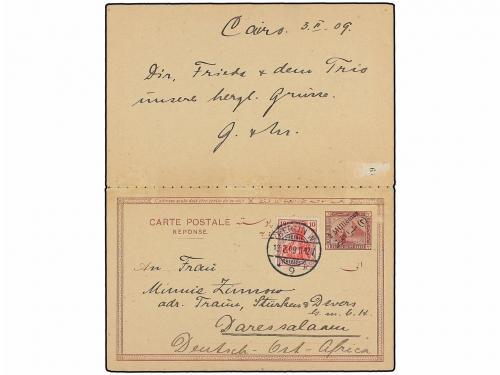 Cairo. 3.II.09.
Dir, Frieda & dem Trio
unsere hergl. Grüsse.
G. & M.
CARTE POSTALE
REPONSE
10
BERLIN N
9
An Frau
Minnie
adr. Traun, Stürken & Devers
G. m. b. H.
Daressalaam
Deutsch-Ost-Africa